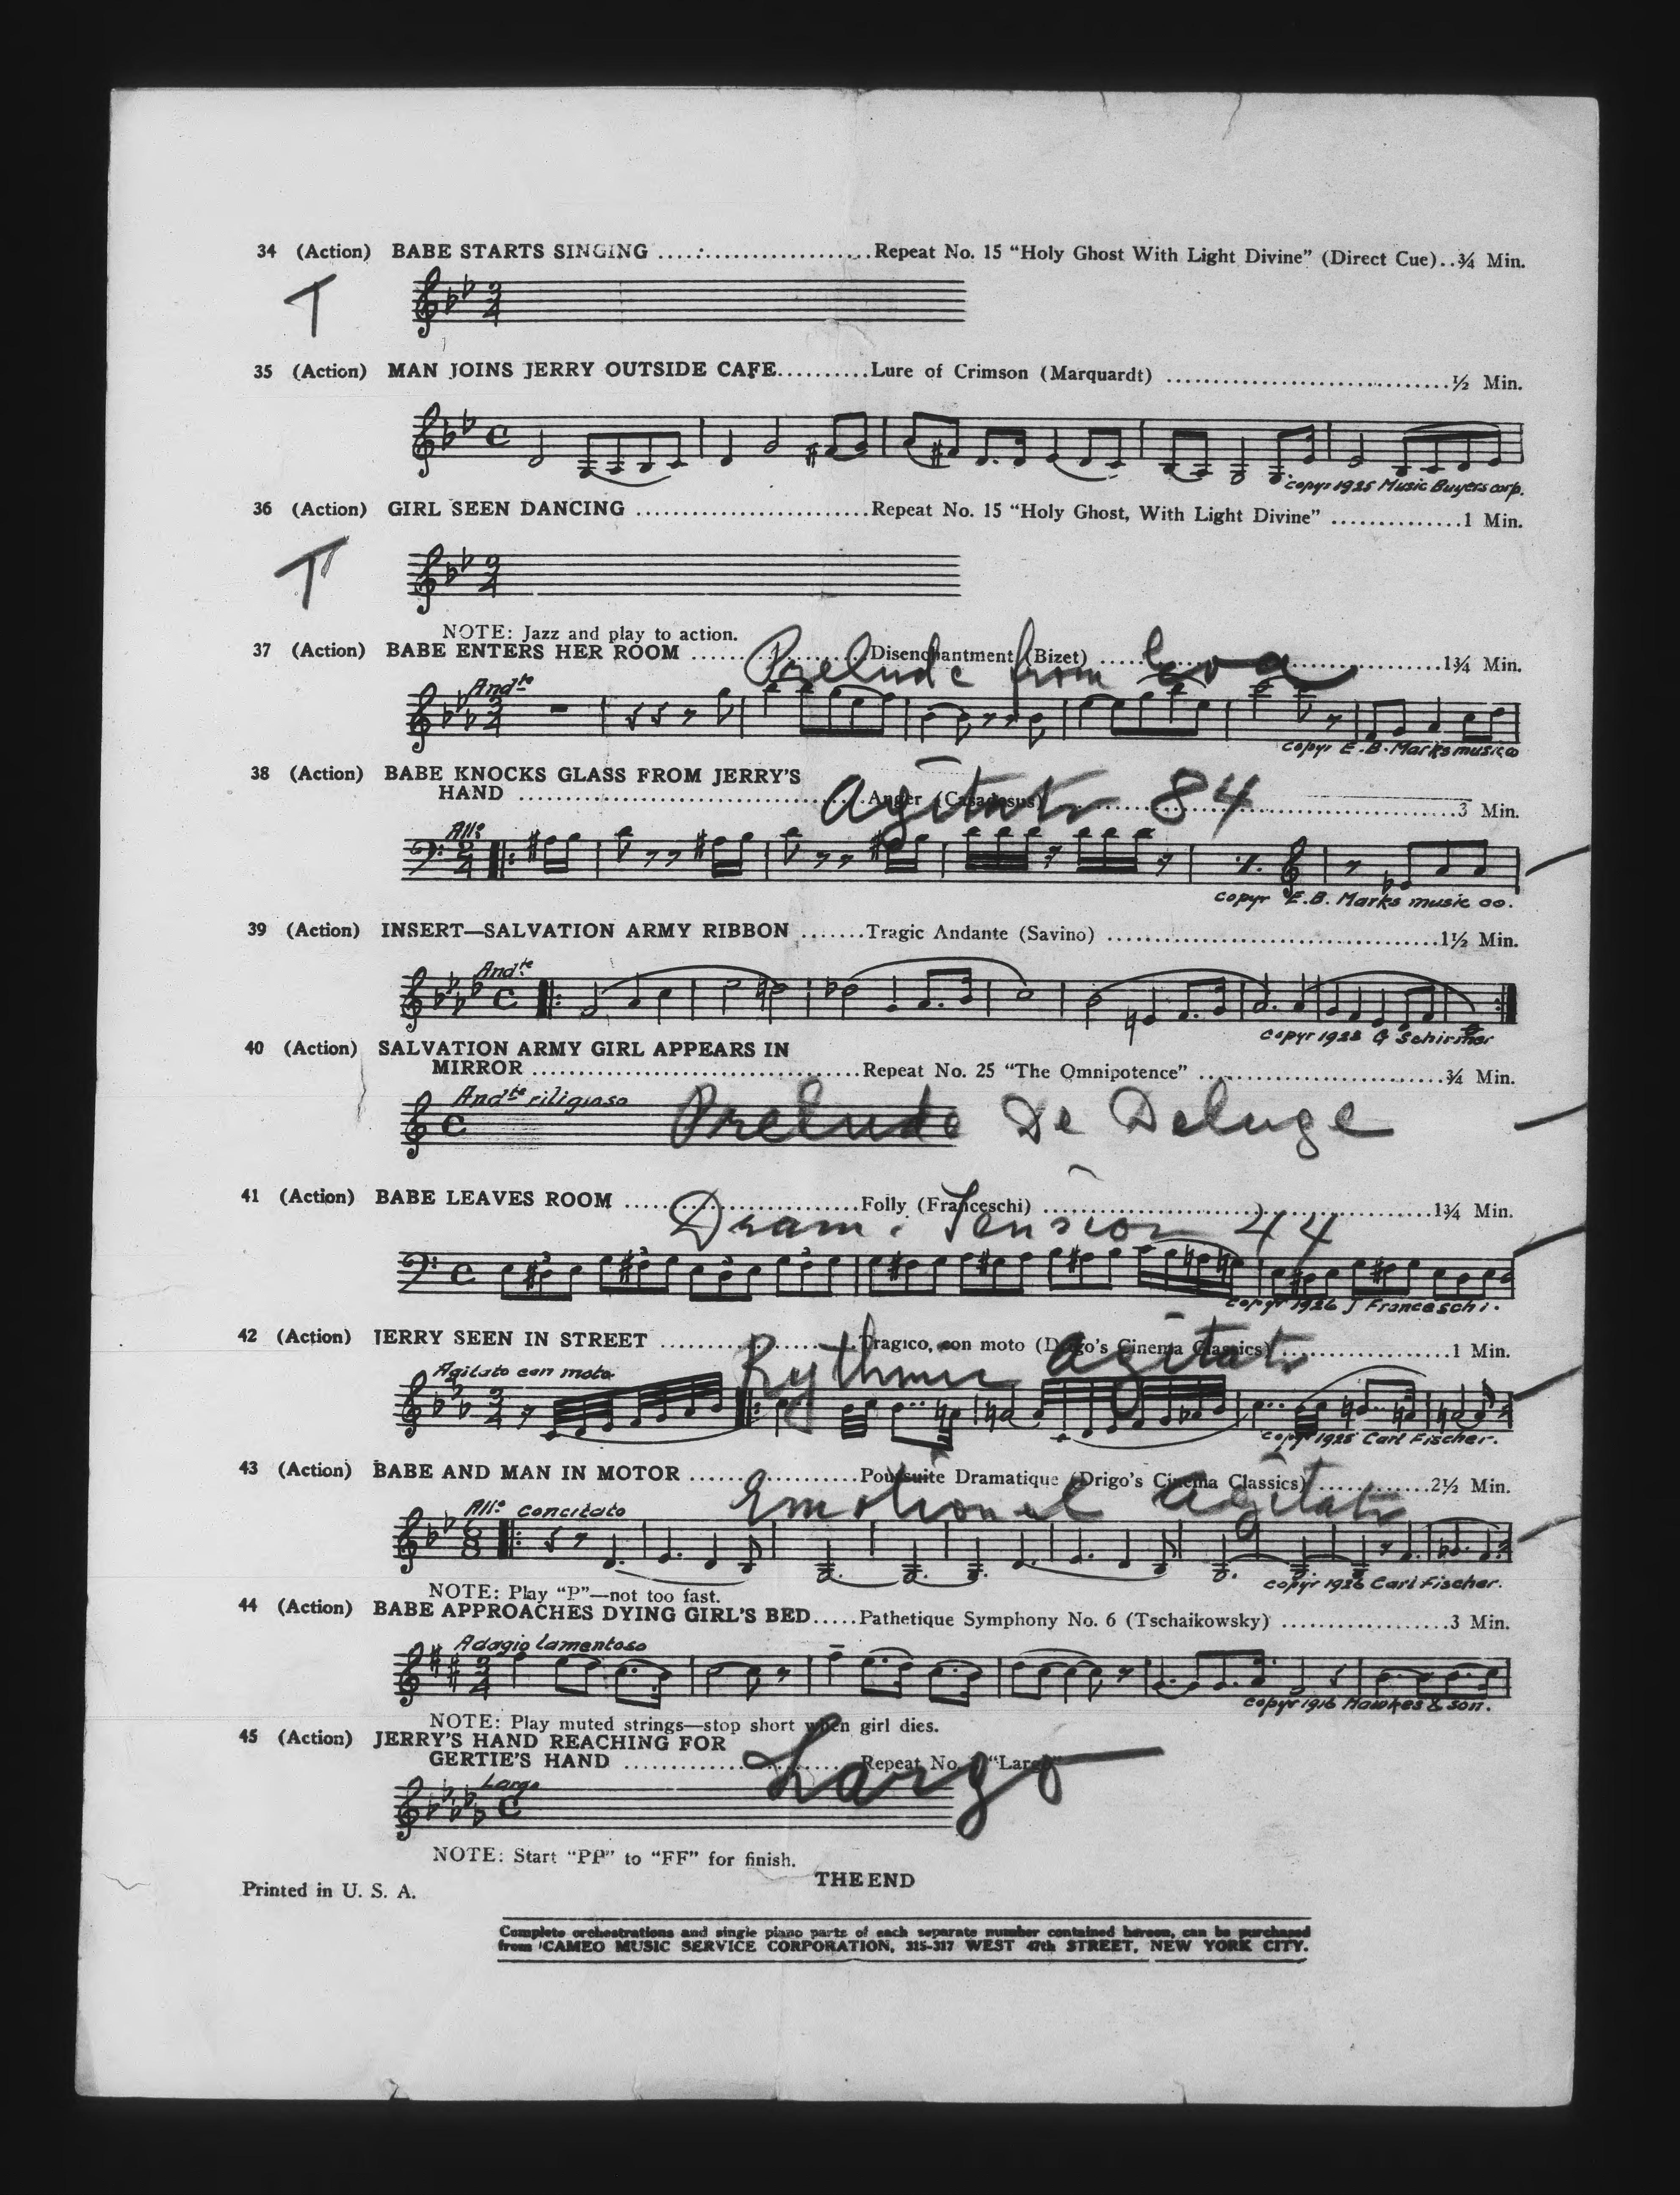 34 (Action) BABE STARTS SINGING ....:..................Repeat No. 15 “Holy Ghost With Light Divine” (Direct Cue)..¾ Min.
T
35 (Action) MAN JOINS JERRY OUTSIDE CAFE..........Lure of Crimson (Marquardt) ..............................½ Min.
copyr 1925 Music Buyers corp.
36 (Action) GIRL SEEN DANCING .........................Repeat No. 15 “Holy Ghost, With Light Divine” ..............1 Min.
T
NOTE: Jazz and play to action.
37 (Action) BABE ENTERS HER ROOM ...................Disenchantment (Bizet) ....................................1¾ Min.
Prelude from Eva
Andte
copyr E.B. Marks music co
38 (Action) BABE KNOCKS GLASS FROM JERRY'S
HAND .....................................Anger (Casadesus) ...........................................3 Min.
Agitato 84
Allo
copyr E.B. Marks music co.
39 (Action) INSERT—SALVATION ARMY RIBBON .......Tragic Andante (Savino) ...................................1½ Min.
Andte
copyr 1928 G Schirmer
40 (Action) SALVATION ARMY GIRL APPEARS IN
MIRROR ...................................Repeat No. 25 “The Omnipotence” ..........................¾ Min.
Andte riligioso
Prelude De Deluge
41 (Action) BABE LEAVES ROOM .........................Folly (Franceschi) .........................................1¾ Min.
Dram. Tension 44
copyr 1926 J Franceschi.
42 (Action) JERRY SEEN IN STREET .....................Tragico, con moto (Drigo's Cinema Classics) ..................1 Min.
Rythmic Agitato
Agitato con moto
copyr 1925 Carl Fischer.
43 (Action) BABE AND MAN IN MOTOR ..................Poursuite Dramatique (Drigo's Cinema Classics) ............2½ Min.
Emotional Agitato
Allo concitato
copyr 1926 Carl Fischer.
NOTE: Play “P”—not too fast.
44 (Action) BABE APPROACHES DYING GIRL'S BED.....Pathetique Symphony No. 6 (Tschaikowsky) ..................3 Min.
Adagio lamentoso
copyr 1916 Hawkes & son.
NOTE: Play muted strings—stop short when girl dies.
45 (Action) JERRY'S HAND REACHING FOR
GERTIE'S HAND .........................Repeat No. “Largo”
Largo
Largo
NOTE: Start “PP” to “FF” for finish.
THE END
Printed in U. S. A.
Complete orchestrations and single piano parts of each separate number contained hereon, can be purchased
from CAMEO MUSIC SERVICE CORPORATION, 315-317 WEST 47th STREET, NEW YORK CITY.